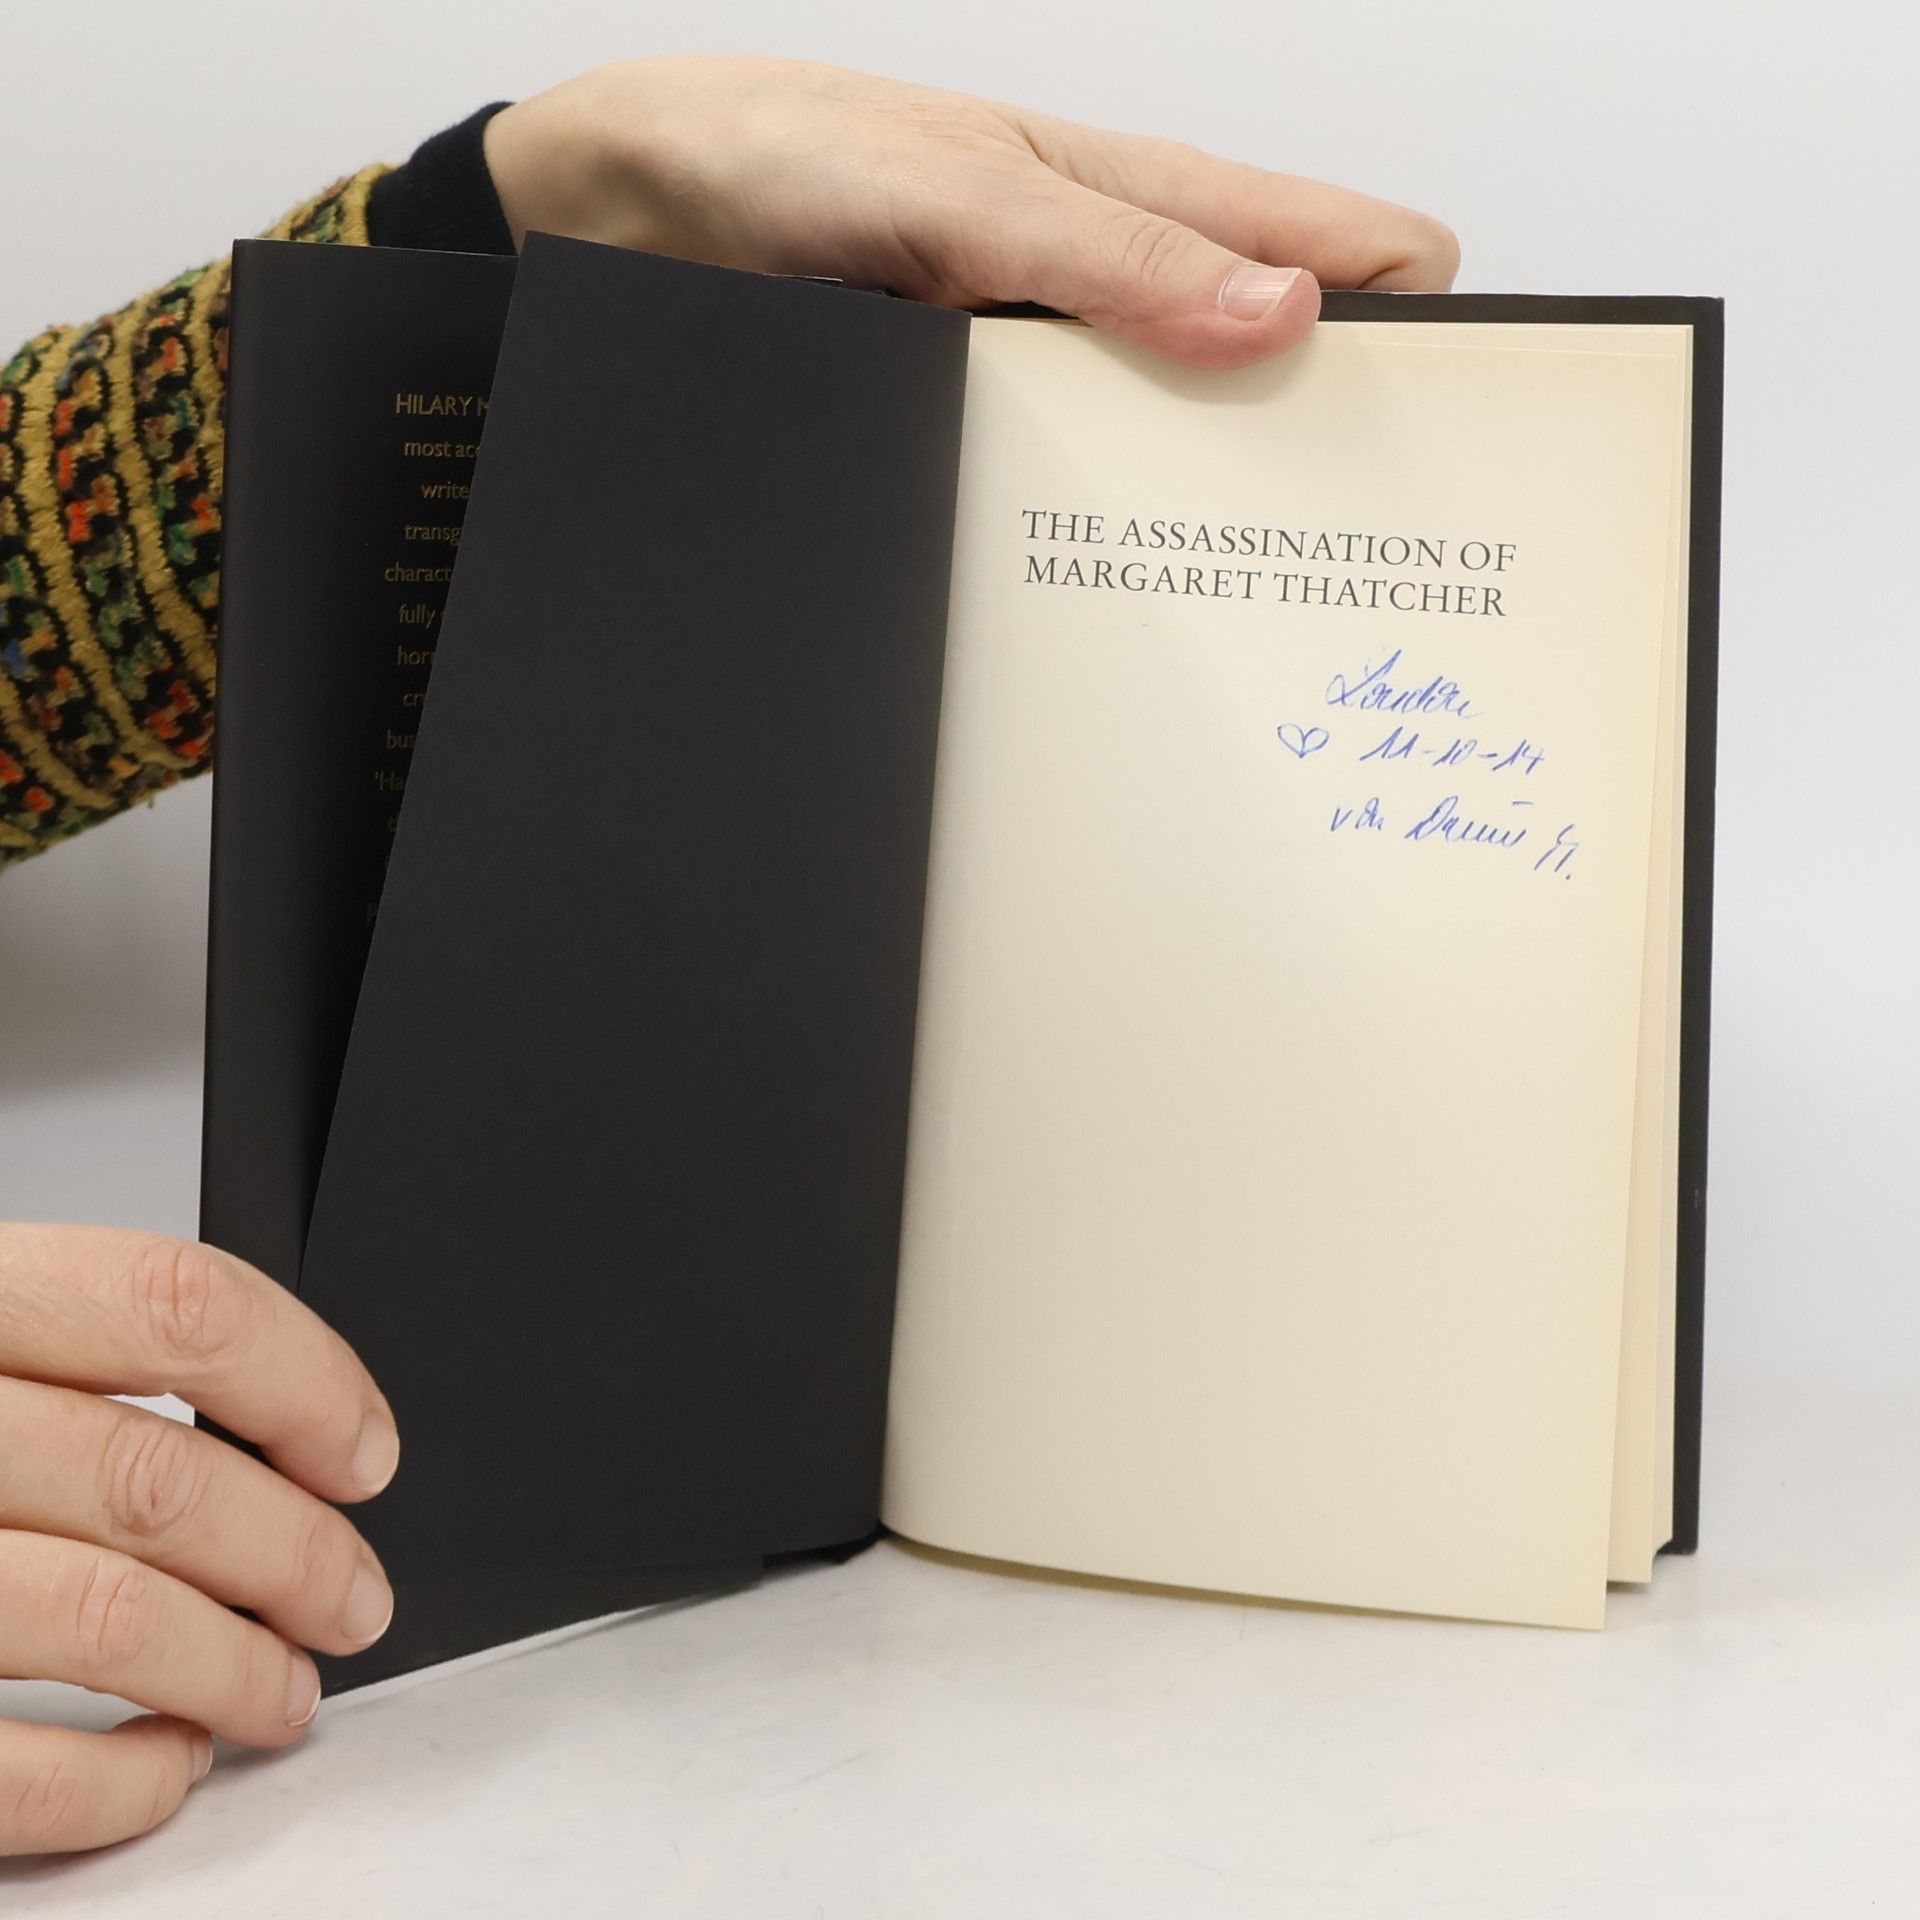 HILARY M
most acc
write
transg
charact
fully
horr
cr
bus
'Ha
THE ASSASSINATION OF
MARGARET THATCHER
London
♡ 11-10-14
von